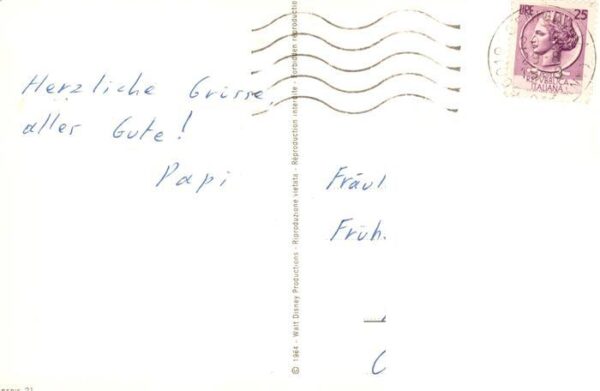 Herzliche Grüsse,
alles Gute!
Papi
Fräul.
Früh.
© 1964 - Walt Disney Productions - Riproduzione vietata - Reproduction interdite - Forbidden reproduction
LIRE 25
REPVBBLICA
ITALIANA